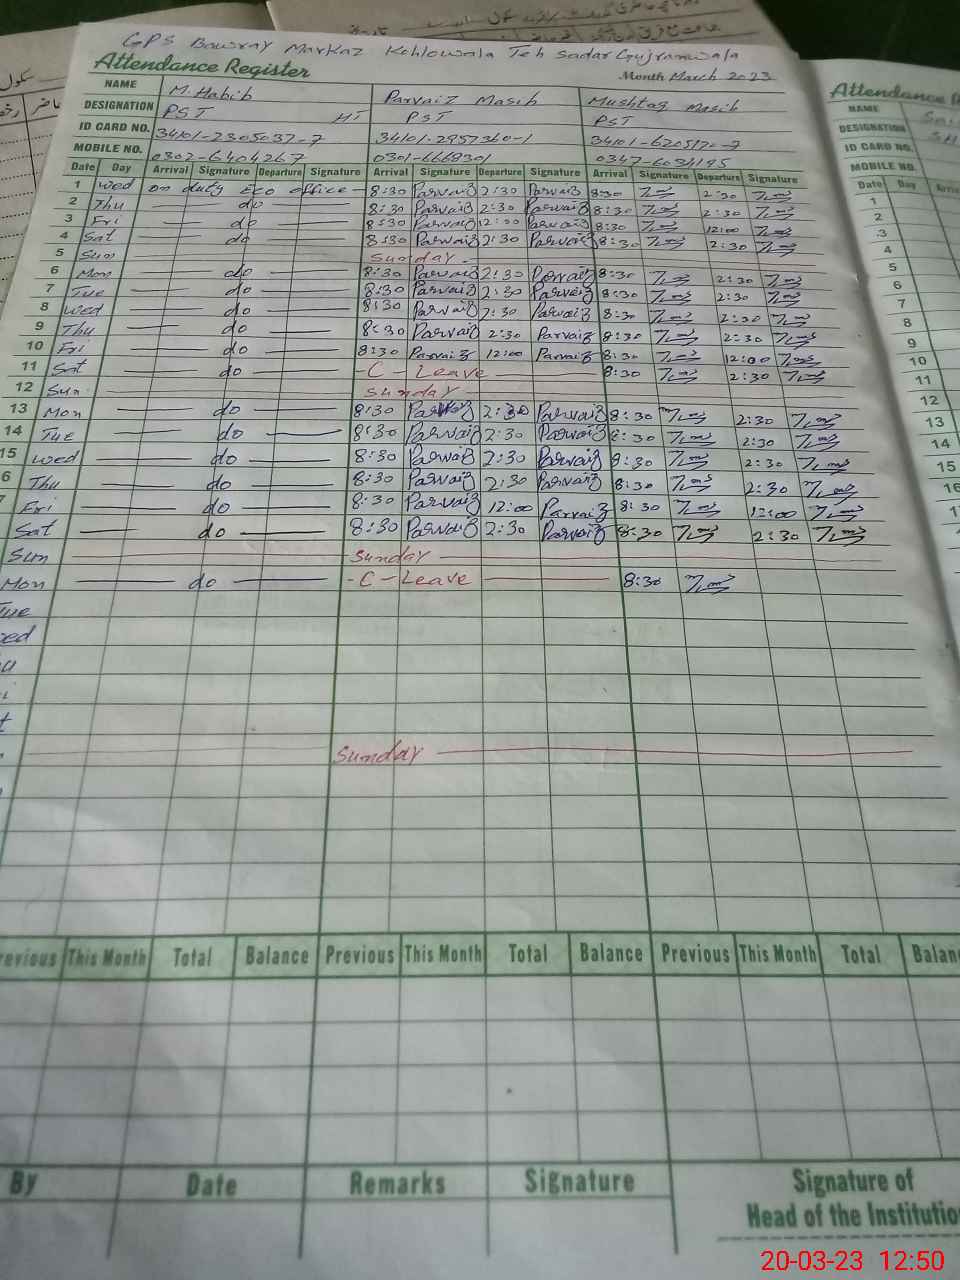 GPS Bawray Markaz Kohlowala Teh Sadar Gujranwala
Attendance Register Month March 2023
NAME M.Habib Parvaiz Masih Mushtaq Masih
DESIGNATION PST HT PST PST
ID CARD NO. 34101-2305037-7 34101-2957360-1
MOBILE NO. 0302-6404267
Date Day Arrival Signature Departure Signature Arrival Signature Departure Signature Arrival Signature Departure Signature
1 Wed on duty Eco office 8:30 Parvaiz 2:30 Parvaiz 8:30 2:30
2 Thu do 8:30 Parvaiz 2:30 Parvaiz 8:30 2:30
3 Fri do 8:30 Parvaiz 12:00 Parvaiz 8:30 12:00
4 Sat do 8:30 Parvaiz 2:30 Parvaiz 8:30 2:30
5 Sun Sunday
6 Mon do 8:30 Parvaiz 2:30 Parvaiz 8:30 2:30
7 Tue do 8:30 Parvaiz 2:30 Parvaiz 8:30 2:30
8 Wed do 8:30 Parvaiz 2:30 Parvaiz 8:30 2:30
9 Thu do 8:30 Parvaiz 2:30 Parvaiz 8:30 2:30
10 Fri do 8:30 Parvaiz 12:00 Parvaiz 8:30 12:00
11 Sat do C-Leave 8:30 2:30
12 Sun Sunday
13 Mon do 8:30 Parvaiz 2:30 Parvaiz 8:30 2:30
14 Tue do 8:30 Parvaiz 2:30 Parvaiz 8:30 2:30
15 Wed do 8:30 Parvaiz 2:30 Parvaiz 8:30 2:30
6 Thu do 8:30 Parvaiz 2:30 Parvaiz 8:30 2:30
7 Fri do 8:30 Parvaiz 12:00 Parvaiz 8:30 12:00
Sat do 8:30 Parvaiz 2:30 Parvaiz 8:30 2:30
Sun Sunday
Mon do -C-Leave 8:30
Tue
ed
u
i
t
Sunday
revious This Month Total Balance Previous This Month Total Balance Previous This Month Total Balan
By Date Remarks Signature Signature of
Head of the Institutio
Attendance
NAME
DESIGNATION
ID CARD NO.
MOBILE NO.
Date Day
1
2
3
4
5
6
7
8
9
10
11
12
13
14
15
16
20-03-23 12:50